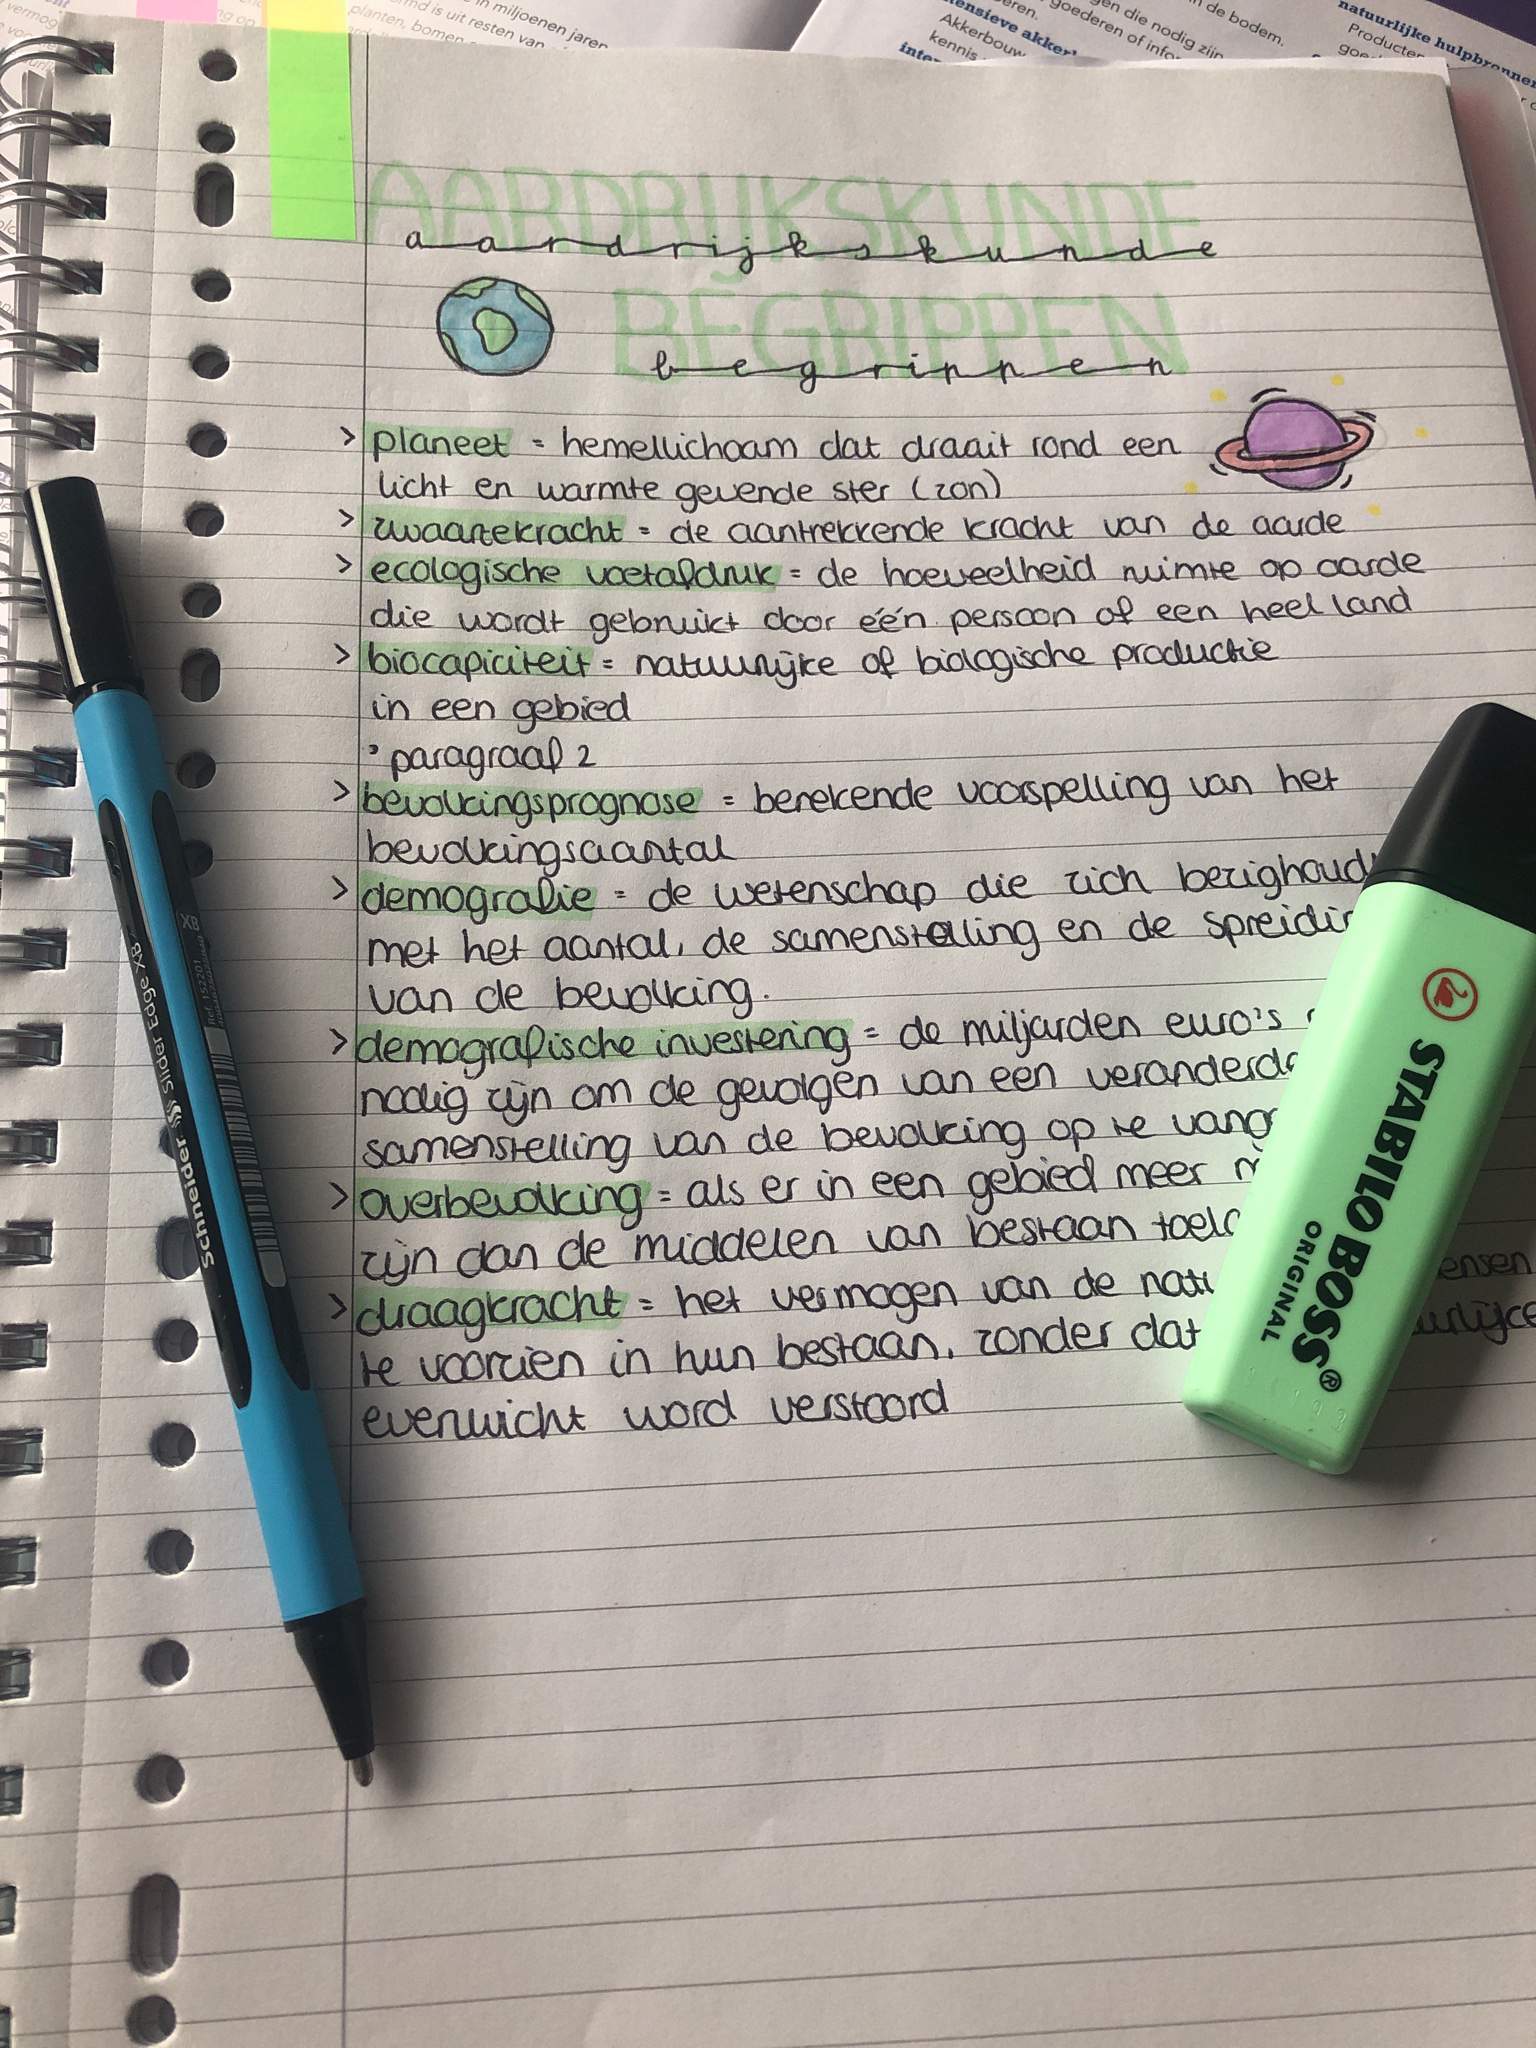 in miljoenen jaren
is uit resten van
planten, bomen
gen die nodig zijn
n de bodem.
goederen of infor
akker
Akkerbouw
kennis
natuurlijke hulpbronnen
Producten
AARDRIJKSKUNDE
aardrijkskunde
BEGRIPPEN
begrippen
> planeet = hemellichaam dat draait rond een
licht en warmte gevende ster (zon)
> zwaartekracht = de aantrekkende kracht van de aarde
> ecologische voetafdruk = de hoeveelheid ruimte op aarde
die wordt gebruikt door één persoon of een heel land
> biocapiciteit = natuurlijke of biologische productie
in een gebied
' paragraaf 2
> bevolkingsprognose = berekende voorspelling van het
bevolkingsaantal
> demografie = de wetenschap die zich bezighoud
met het aantal, de samenstelling en de spreidin
van de bevolking.
> demografische investering = de miljarden euro's
nodig zijn om de gevolgen van een veranderde
samenstelling van de bevolking op te vange
> overbevolking = als er in een gebied meer m ensen
zijn dan de middelen van bestaan toela
> draagkracht = het vermogen van de natu urlijke
te voorzien in hun bestaan, zonder dat
evenwicht word verstoord
Schneider Slider Edge XB
XB
Ref. 152201
STABILO BOSS®
ORIGINAL